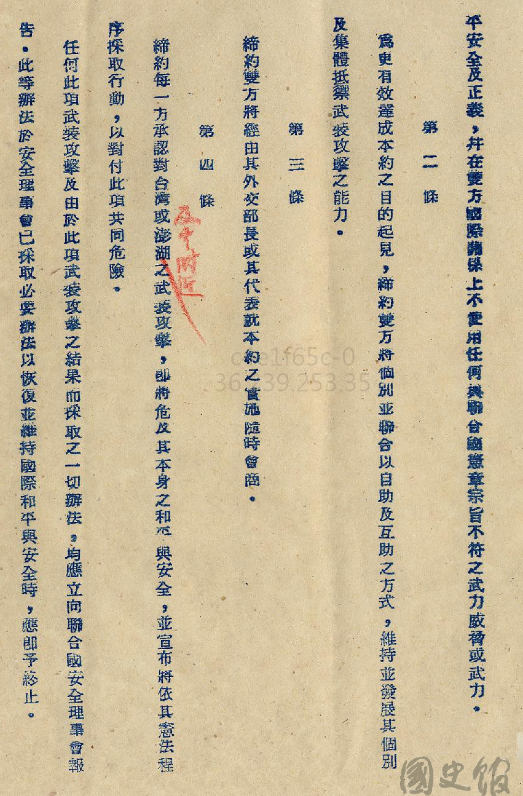 平安全及正義，并在雙方國際關係上不使用任何與聯合國憲章宗旨不符之武力威脅或武力。
第二條
為更有效達成本約之目的起見，締約雙方將個別並聯合以自助及互助之方式，維持並發展其個別
及集體抵禦武裝攻擊之能力。
第三條
締約雙方將經由其外交部長或其代表就本約之實施隨時會商。
第四條
締約每一方承認對台灣或澎湖之武裝攻擊，即將危及其本身之和平與安全，並宣布將依其憲法程
及其附近
序採取行動，以對付此項共同危險。
任何此項武裝攻擊及由於此項武裝攻擊之結果而採取之一切辦法，均應立向聯合國安全理事會報
告。此等辦法於安全理事會已採取必要辦法以恢復並維持國際和平與安全時，應即予終止。
國史館